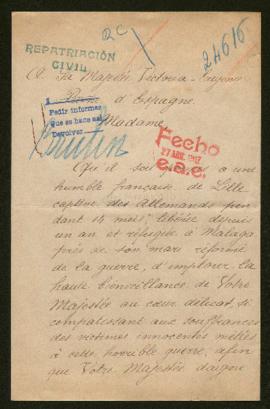 REPATRIACIÓN
CIVIL
24616
A Sa Majesté Victoria-Eugénie
Reine d'Espagne.
Pedir informes
que se hace así
Devolver
Madame,
Fecho
27 ABR. 1917
e.a.e.
Qu'il soit permis à une
humble française de Lille
captive des Allemands pen-
dant 14 mois, libérée depuis
un an et réfugiée à Malaga
près de son mari réformé
de la guerre, d'implorer la
haute bienveillance de Votre
Majesté au cœur délicat, si
compatissant aux souffrances
des victimes innocentes mêlées
à cette horrible guerre, afin
que Votre Majesté daigne